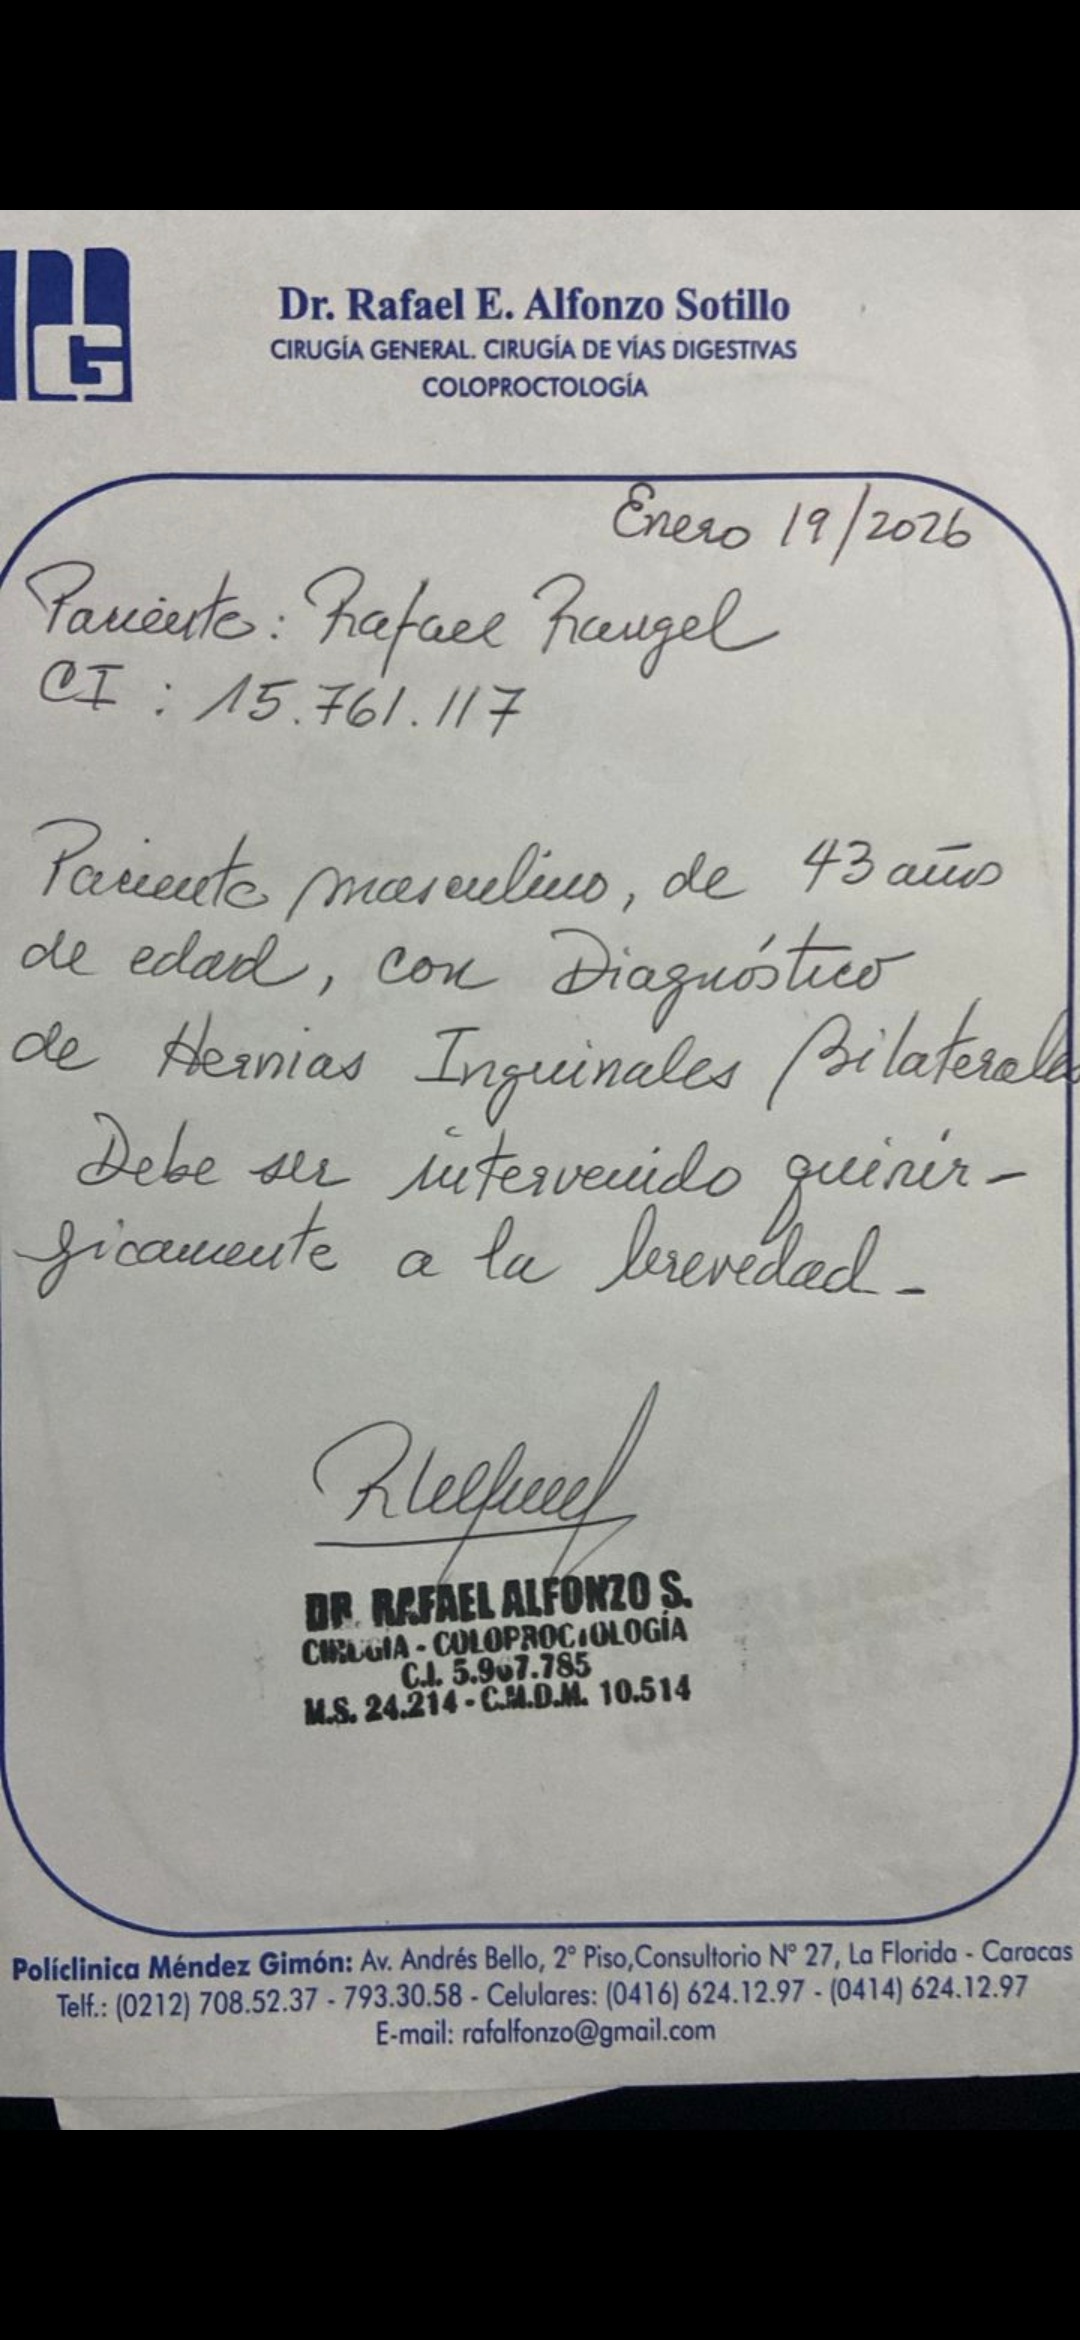 Dr. Rafael E. Alfonzo Sotillo
CIRUGÍA GENERAL. CIRUGÍA DE VÍAS DIGESTIVAS
COLOPROCTOLOGÍA
Enero 19/2026
Paciente: Rafael Rangel
CI : 15.761.117
Paciente masculino, de 43 años
de edad, con Diagnóstico
de Hernias Inguinales Bilaterales
Debe ser intervenido quirúr-
gicamente a la brevedad.
DR. RAFAEL ALFONZO S.
CIRUGIA - COLOPROCTOLOGÍA
C.I. 5.967.785
M.S. 24.214 - C.M.D.M. 10.514
Políclinica Méndez Gimón: Av. Andrés Bello, 2° Piso,Consultorio N° 27, La Florida - Caracas
Telf.: (0212) 708.52.37 - 793.30.58 - Celulares: (0416) 624.12.97 - (0414) 624.12.97
E-mail: rafalfonzo@gmail.com